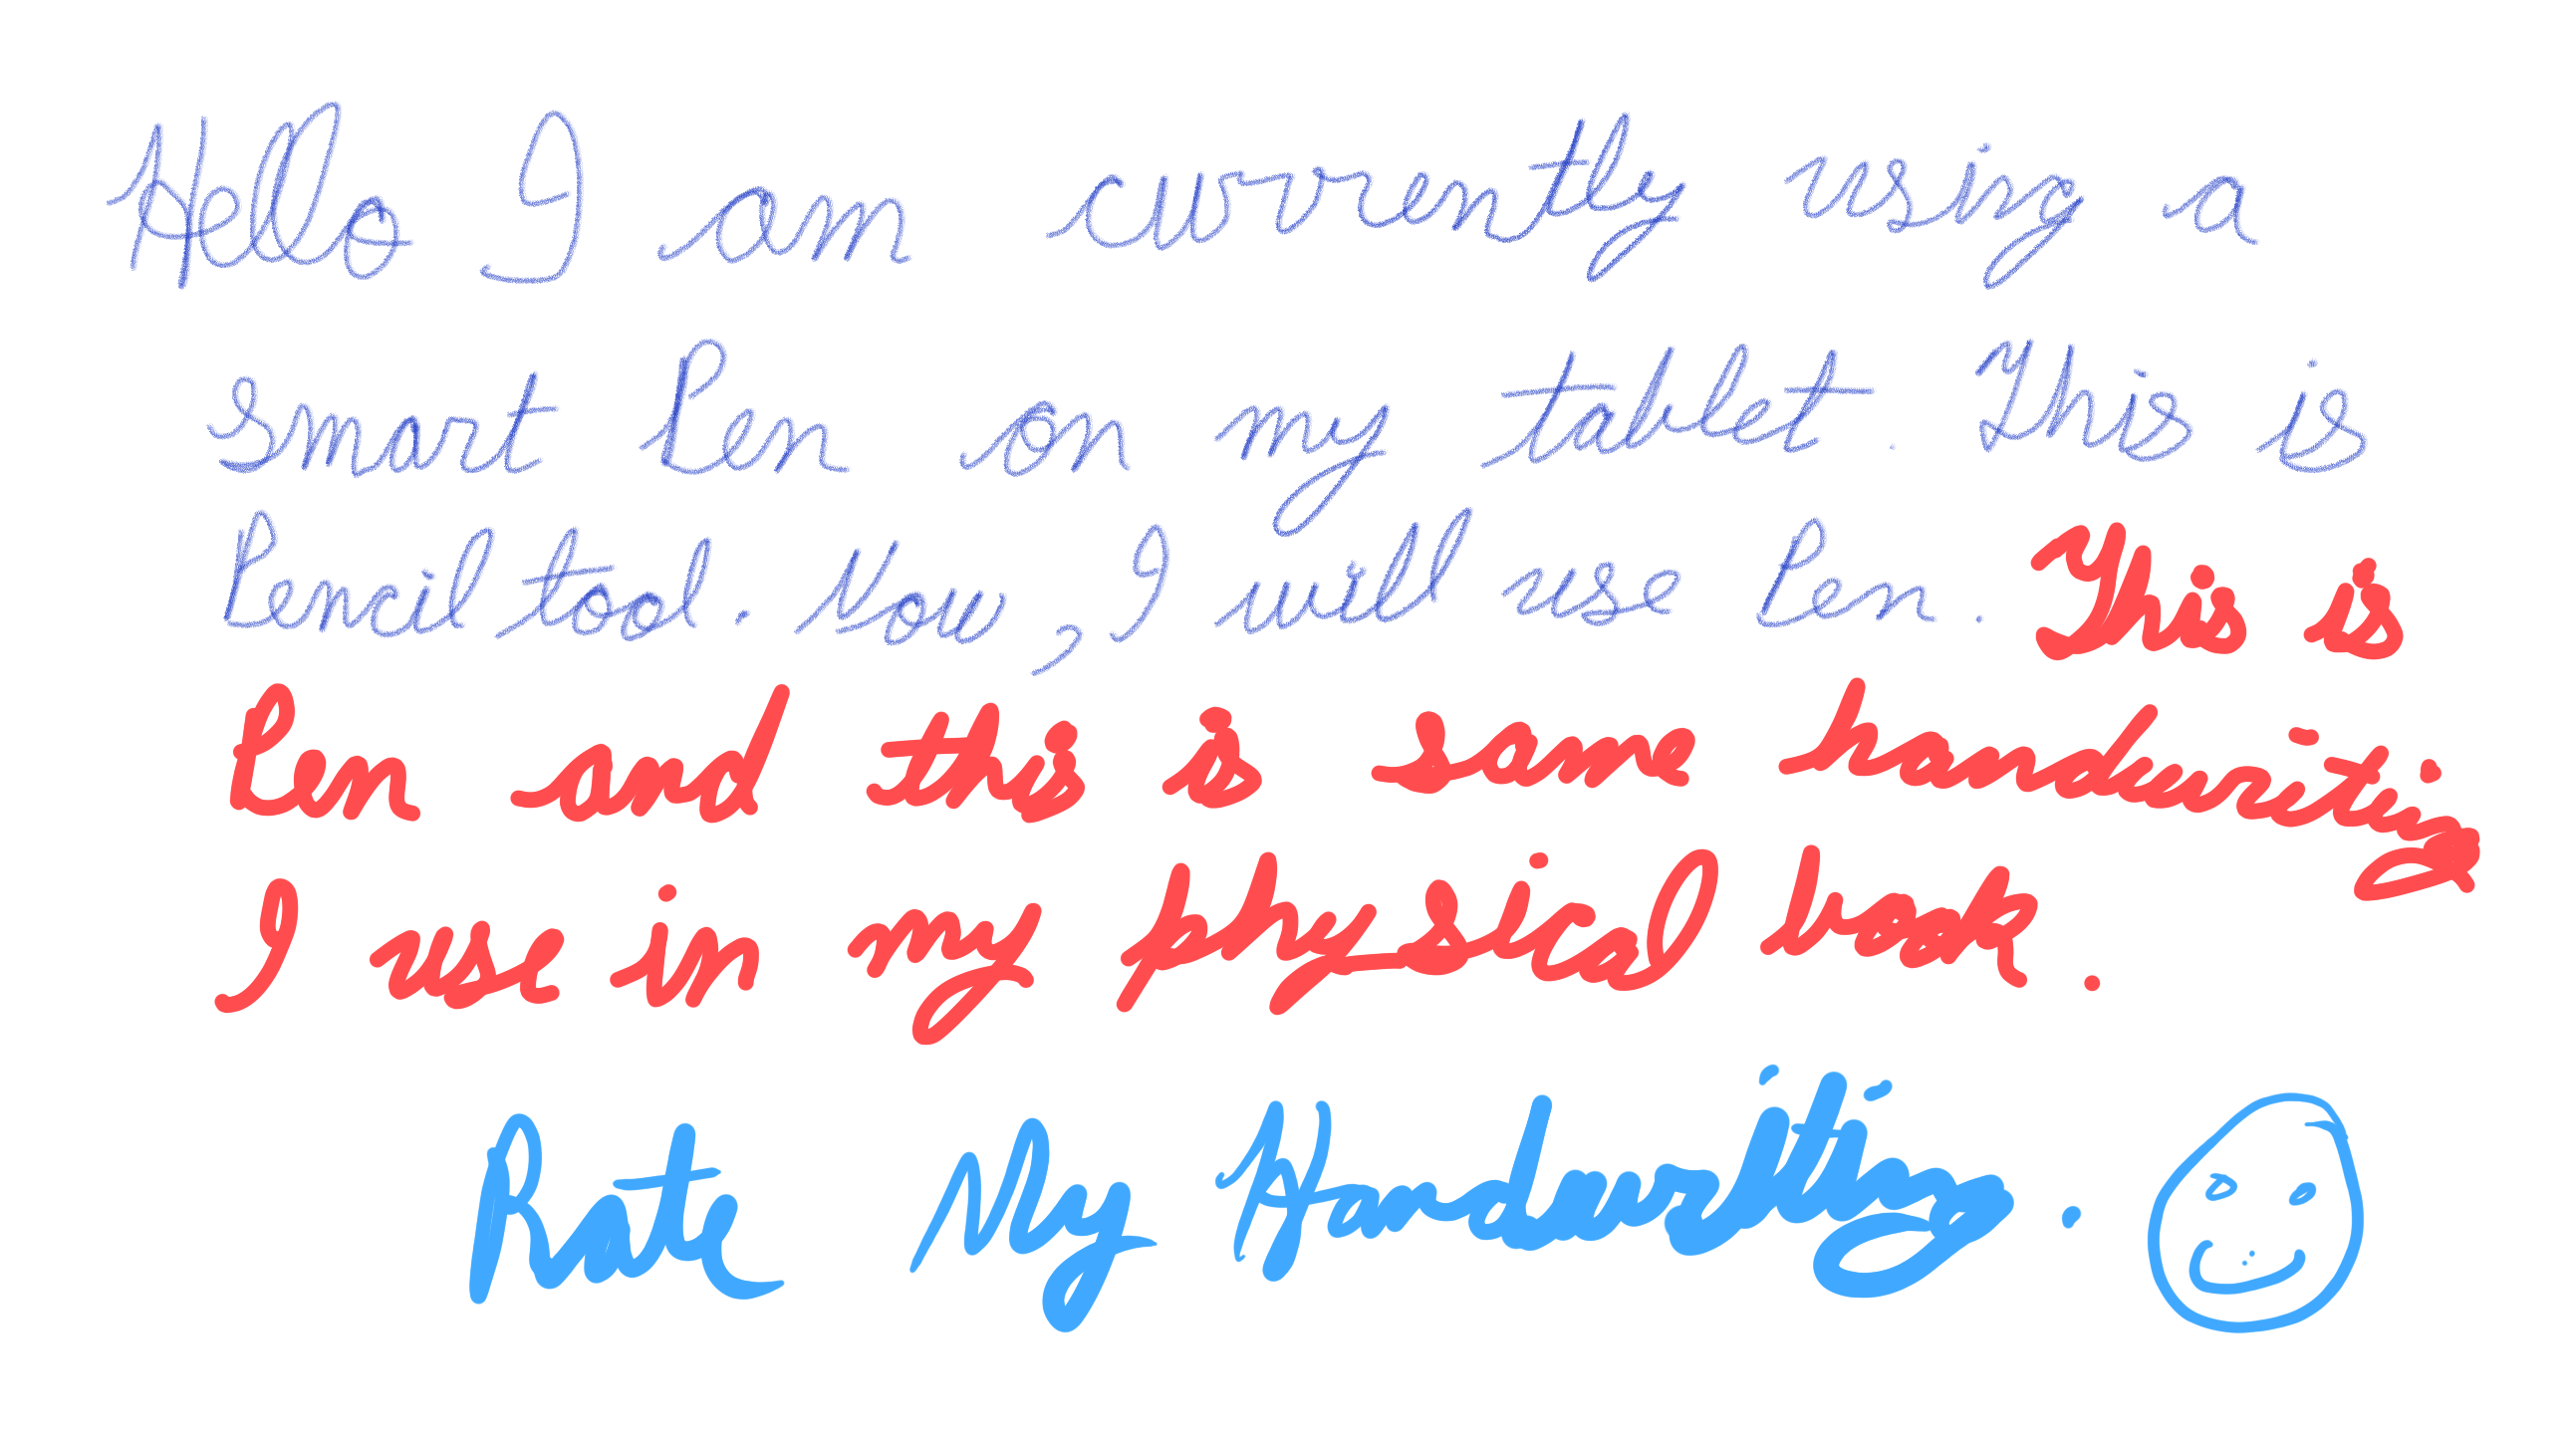 Hello I am currently using a
smart Pen on my tablet. This is
Pencil tool. Now, I will use Pen. This is
Pen and this is same handwriting
I use in my physical book.
Rate My Handwriting.